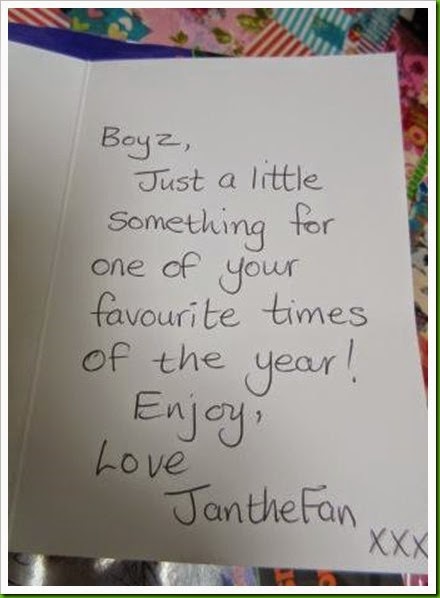 Boyz,
Just a little
something for
one of your
favourite times
of the year!
Enjoy,
Love
JantheFan
xxx